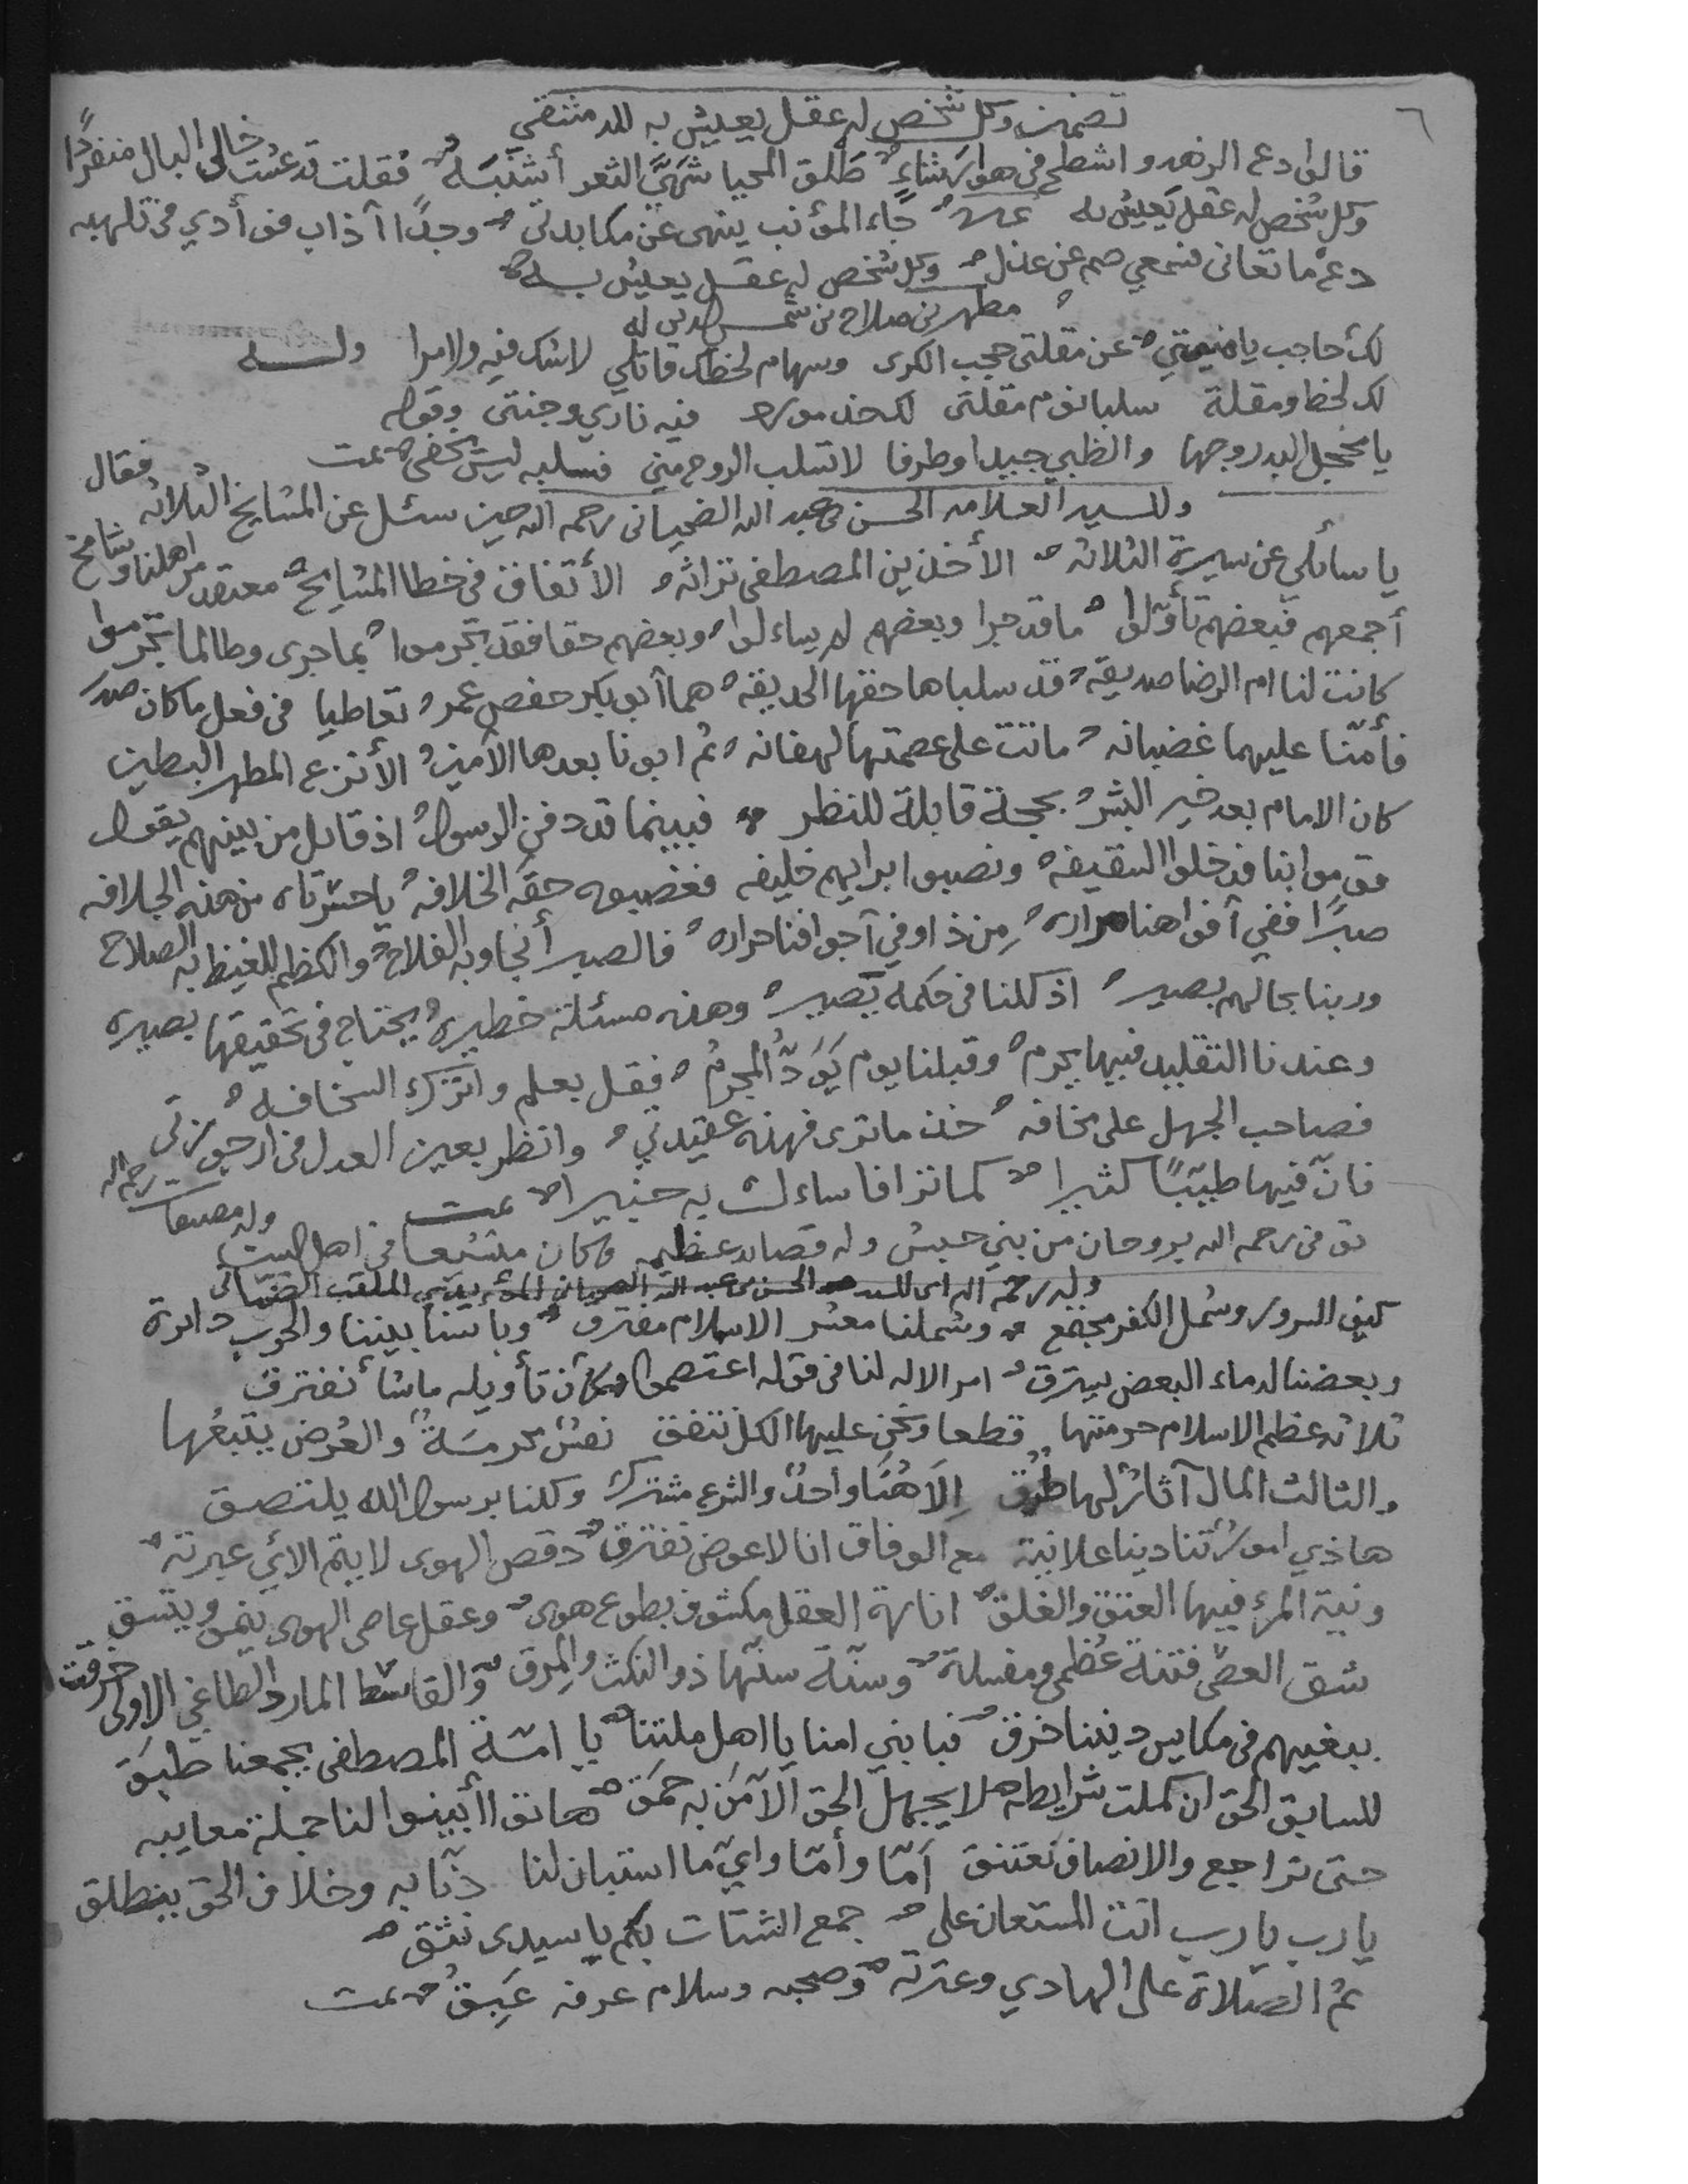 ٦
تضمين وكل شخص له عقل يعيش به
قالوا دع الزهد واشطح في هوا رشاءٍ طلق المحيا شهيّ الثغر أشنبه فقلت قد عشت خالي البال منفردًا
وكل شخص له عقل يعيش به جاء المؤنب ينهى عن مكابدتي وجدًا آذاب فؤأدي في تلهبه
دعْ ما تعانى فسمعي صم عن عذل وكل شخص له عقل يعيش به
مطهر بن صلاح بن شمس الدين له
لك حاجب يا منيتي عن مقلتي حجب الكرى وسهام لحظك قاتلي لا شك فيه ولا مرا وله
لك لحظ ومقلة سلبا نوم مقلتى لك خد مورد فيه ناري وجنتى وقوله
يا مخجل البدر وجها والظبي جيدا وطرفا لا تسلب الروح مني فسلبه ليس يخفى تمت
وللسيد العلامه الحسن بن عبد الله الضحياني رحمه الله حين سئل عن المشايخ الثلاثه فقال
يا سائلي عن سيرة الثلاثه الأخذين المصطفى تراثه الأتفاق في خطا المشايخ معتقد من اهلنا وشامخ
أجمعهم فبعضهم تأوّلوا ما قد جرا وبعضهم لم يساءلوا وبعضهم حقا فقد تجرموا بما جرى وطالما تجرموا
كانت لنا ام الرضا صديقه قد سلباها حقها الحديقه هما آبو بكر حفص عمر تعاطيا في فعل ما كان صدر
فأمّنا عليهما غضبانه ماتت على عصمتها لهفانه ثم ابونا بعدها الأمين الأنزع المطهر البطين
كان الامام بعد خير البشر بحجة قابلة للنظر فبينما قد دفن الرسول اذ قائل من بينهم يقول
قوموا بنا فدخلوا السقيفه ونصبوا ابراهيم خليفه فغصبوه حقه الخلافه يا حسرتاه من هذه الجلافه
صبرًا ففي آفواهنا مراره مِن ذا وفي آجوافنا حراره فالصبر أنجا وبه الفلاح والكظم للغيظ به الصلاح
وربنا بحالهم بصير اذ كلنا في حكمه يَصير وهذه مسئلة خطيره يحتاج في تحقيقها بصيره
وعندنا التقليد فيها يحرم وقبلنا يوم يَوَدُّ المجرم فقل بعلم واترك السخافه
فصاحب الجهل على مخافه خذ ما ترى فهذه عقيدتي وانظر بعين العدل في ارجوزتي
فانّ فيها طيّبًا كثيرا كما تزا فاساءل به خبيرا تمت
توفى رحمه الله بروحان من بني حبش وله قصائد عظيمه وكان متشيعا في اهل البيت
وله رحمه الله
كيف السرور وشمل الكفر مجتمع وشملنا معشر الاسلام مفترق وباسنا بيننا والحرب دائرة
وبعضنا لدماء البعض يهترق امر الاله لنا في قوله اعتصموا وكان تأويله ماشأ نفترق
ثلاثة عظم الاسلام حرمتها قطعا ونحن عليها الكل نتفق نفس محرمة والعرض يتبعُها
والثالث المال آثارٌ لها طُرُق إِلاهُنَا واحدٌ والشرع مشترك وكلنا برسول الله يلتصق
هاذي امورٌ تنادينا علانية مع الوفاق انا لا عوض نفترق
ونية المرء فيها العتق والغلق انارة العقل مكشوف بطوع هوى وعقل عاصى الهوى ينمو ويتسق
شق العصى فتنة عُظمى ومفسدة وسنّة سنّها ذو النكث والمِرق والقاسط المارد الطاغي الاولى خرقت
ببغيهم في مكايس ديننا خرق فيا بني امنا يا اهل ملتنا يا امّة المصطفى يجمعنا طبَق
للسابق الحق ان كملت شرايطه لا يجهل الحق الاّ مَن به حمَق هاتوا أبينوا لنا جملة معايبه
حتى نراجع والانصاف نعتنق آمّا وأمّا وايّ ما استبان لنا دِنّا به وخلاف الحق ينطلق
يا رب يا رب انت المستعان على جمع الشتات بكم يا سيدى نثق
ثم الصلاة على الهادي وعترته وصحبه وسلام عرفه عَبِقُ تمت